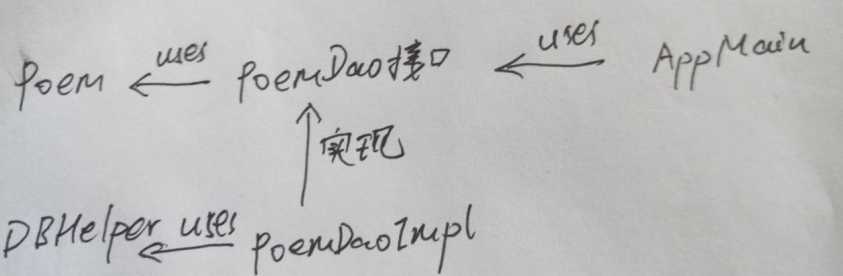 Poem uses PoemDao接口 uses AppMain
实现
DBHelper uses PoemDaoImpl